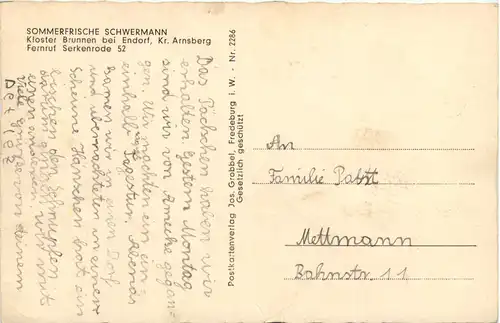 SOMMERFRISCHE SCHWERMANN
Kloster Brunnen bei Endorf, Kr. Arnsberg
Fernruf Serkenrode 52
Das Päckchen haben wir
erhalten. Gestern Montag
sind wir von Amecke gegan-
gen. Wir machten ein ein-
einhalb Tagestur. Abends
kamen wir in einen Dorf
und übernachteten in einem
Scheune. Hänschen hat ein
bischen den Schnupfen
viele Grüße von deinem
Postkartenverlag Jos. Grobbel, Fredeburg i. W. - Nr. 2286
Gesetzlich geschützt
An
Familie Pabst
Mettmann
Bahnstr. 11